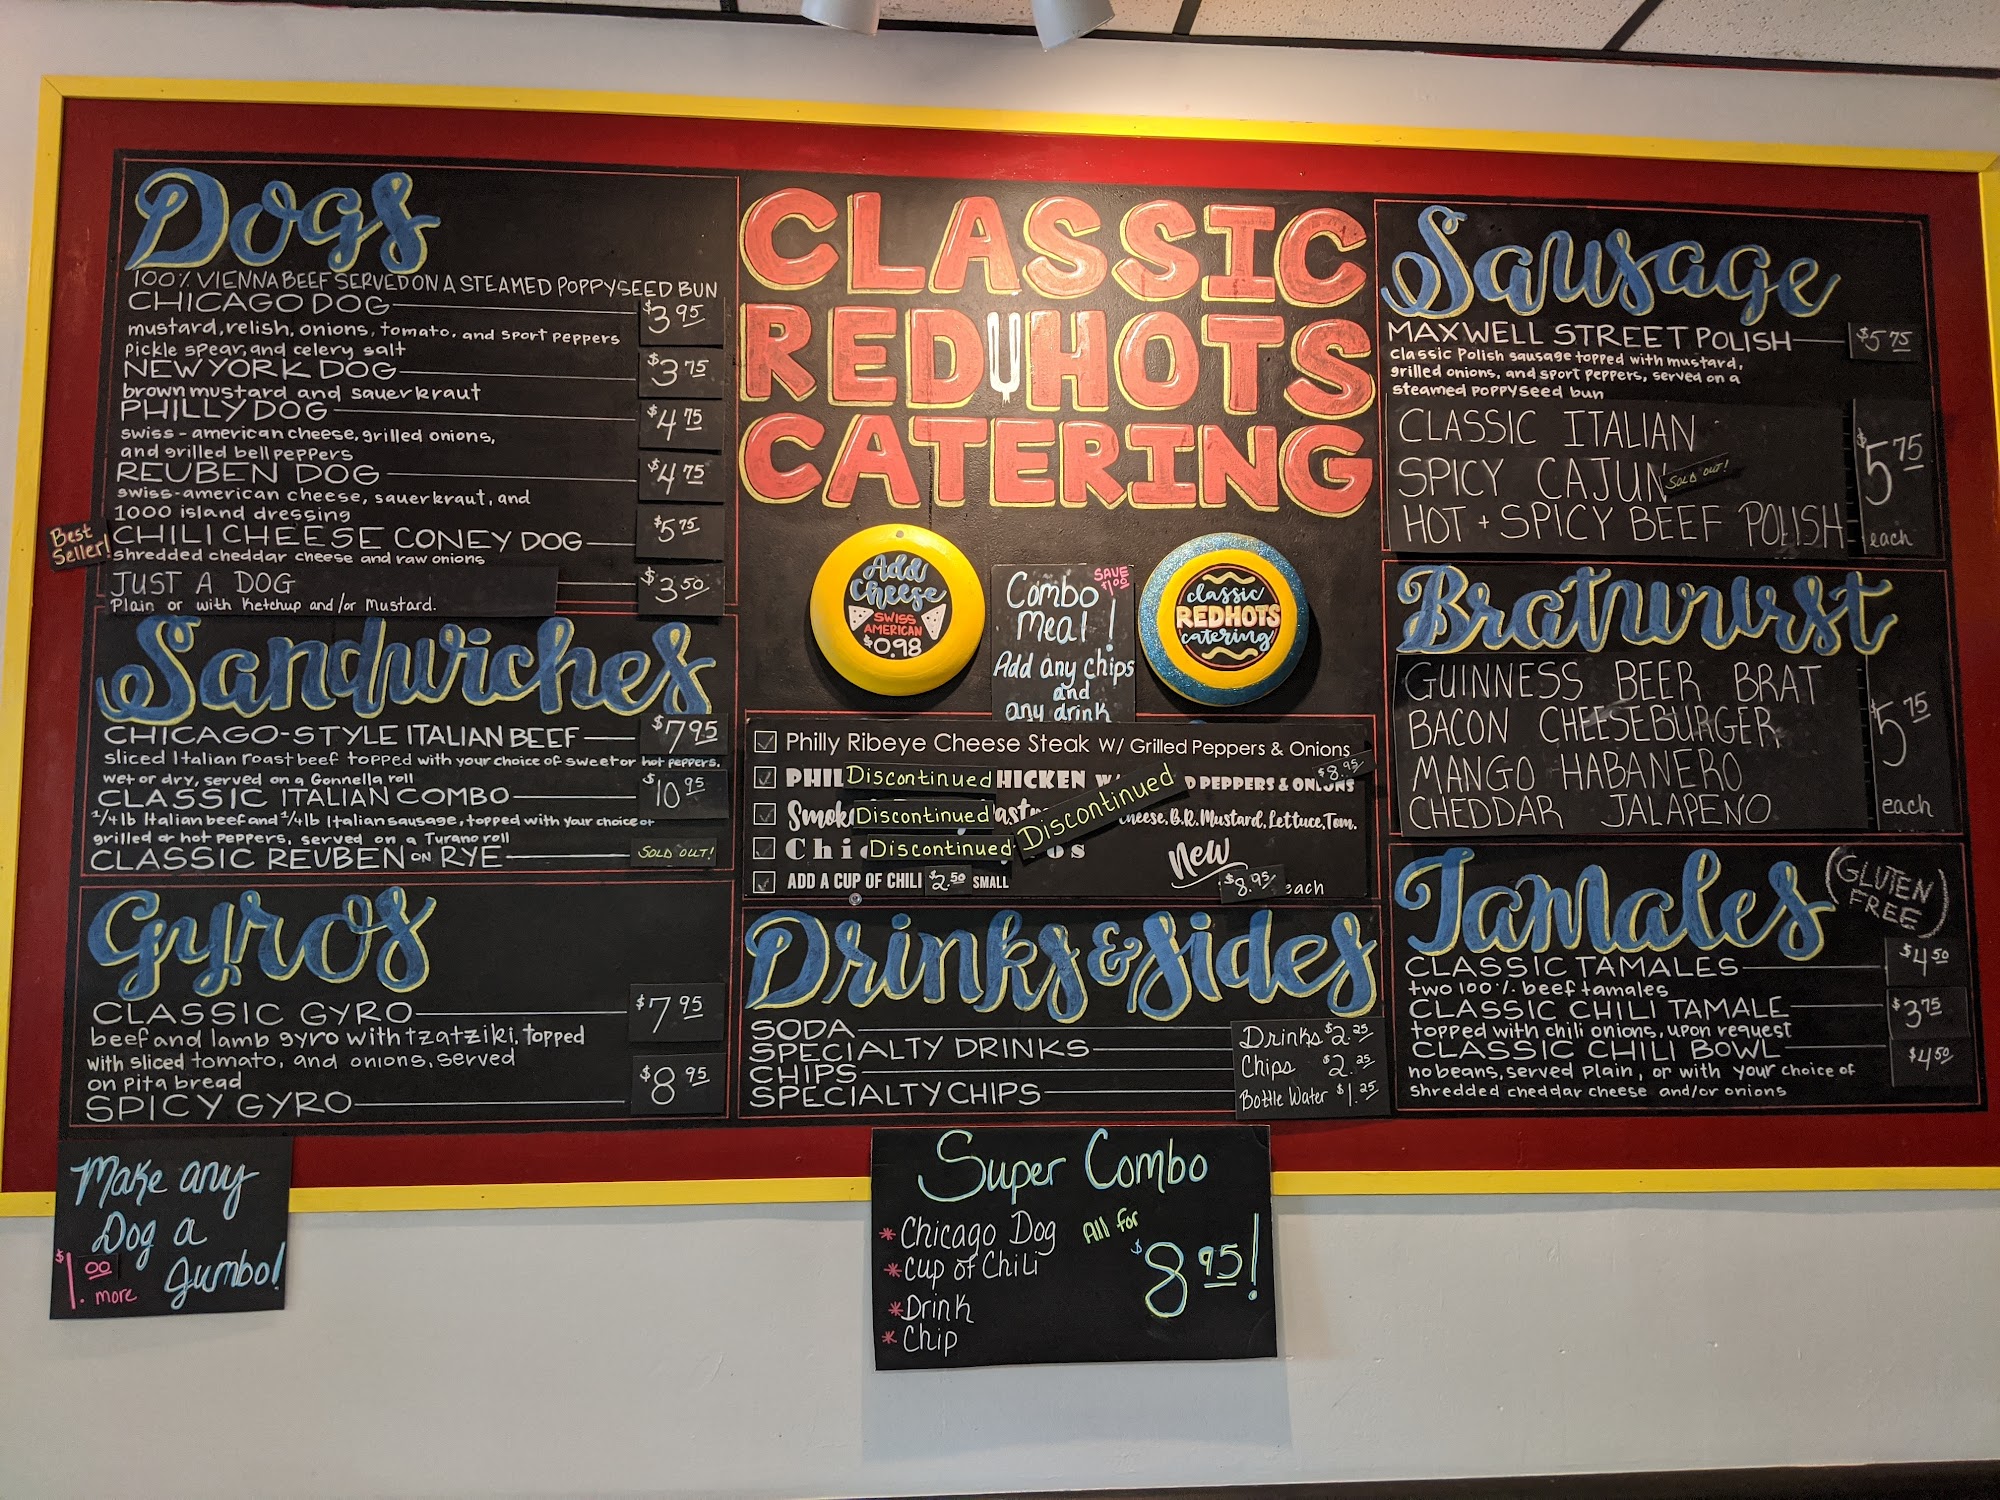 Dogs
100% VIENNA BEEF SERVED ON A STEAMED POPPYSEED BUN
CHICAGO DOG $3.95
mustard, relish, onions, tomato, and sport peppers
pickle spear, and celery salt
NEW YORK DOG $3.75
brown mustard and sauerkraut
PHILLY DOG $4.75
swiss-american cheese, grilled onions,
and grilled bell peppers
REUBEN DOG $4.75
swiss-american cheese, sauerkraut, and
1000 island dressing
Best
Seller!
CHILI CHEESE CONEY DOG $5.75
shredded cheddar cheese and raw onions
JUST A DOG $3.50
Plain or with Ketchup and/or Mustard.
Sandwiches
CHICAGO-STYLE ITALIAN BEEF $7.95
sliced Italian roast beef topped with your choice of sweet or hot peppers,
wet or dry, served on a Gonnella roll
CLASSIC ITALIAN COMBO $10.95
1/4 lb Italian beef and 1/4 lb Italian sausage, topped with your choice of
grilled or hot peppers, served on a Turano roll
CLASSIC REUBEN ON RYE SOLD OUT!
Gyros
CLASSIC GYRO $7.95
beef and lamb gyro with tzatziki, topped
with sliced tomato, and onions, served
on pita bread
SPICY GYRO $8.95
Make any
Dog a
Jumbo!
$1.00
more
CLASSIC
RED HOTS
CATERING
Add
Cheese
SWISS
AMERICAN
$0.98
Combo
Meal!
SAVE
$1.00
Add any chips
and
any drink
classic
REDHOTS
catering
Philly Ribeye Cheese Steak W/ Grilled Peppers & Onions
PHIL Discontinued HICKEN W/ D PEPPERS & ONIONS $8.95
Smok Discontinued ast Discontinued heese, B.R. Mustard, Lettuce, Tom.
Chi Discontinued os New
ADD A CUP OF CHILI $2.50 SMALL $8.95 each
Drinks & Sides
SODA
SPECIALTY DRINKS
CHIPS
SPECIALTY CHIPS
Drinks $2.25
Chips $2.25
Bottle Water $1.25
Super Combo
* Chicago Dog
* Cup of Chili
* Drink
* Chip
All for
$8.95!
Sausage
MAXWELL STREET POLISH $5.75
classic Polish sausage topped with mustard,
grilled onions, and sport peppers, served on a
steamed poppyseed bun
CLASSIC ITALIAN
SPICY CAJUN SOLD OUT!
HOT + SPICY BEEF POLISH
$5.75
each
Bratwurst
GUINNESS BEER BRAT
BACON CHEESEBURGER
MANGO HABANERO
CHEDDAR JALAPENO
$5.75
each
Tamales
(GLUTEN
FREE)
CLASSIC TAMALES $4.50
two 100% beef tamales
CLASSIC CHILI TAMALE $3.75
topped with chili onions, upon request
CLASSIC CHILI BOWL $4.50
no beans, served plain, or with your choice of
shredded cheddar cheese and/or onions